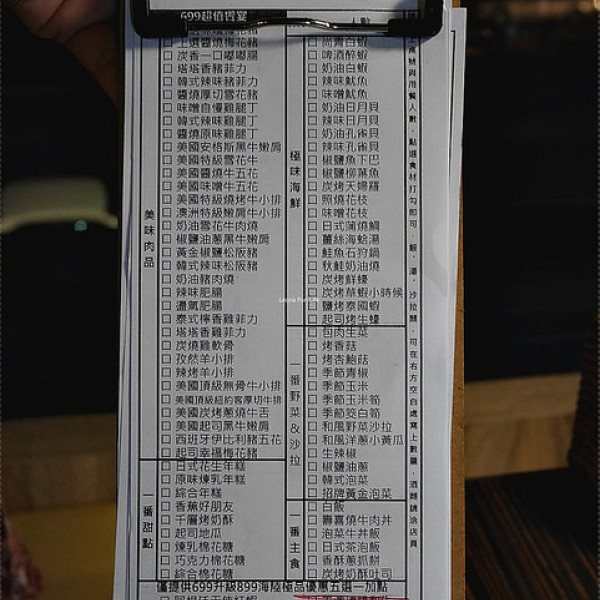 699超值饗宴
人數
美味肉品
上選醬燒梅花豬
炭香一口嘟嘟腸
塔塔香豬菲力
韓式辣味豬菲力
醬燒厚切雪花豬
味噌自慢雞腿丁
韓式辣味雞腿丁
醬燒原味雞腿丁
美國安格斯黑牛嫩肩
美國特級雪花牛
美國醬燒牛五花
美國味噌牛五花
美國特級燒烤牛小排
澳洲特級嫩肩牛小排
奶油雪花牛肉燒
椒鹽油蔥黑牛嫩肩
黃金椒鹽松阪豬
韓式辣味松阪豬
奶油豬肉燒
辣味肥腸
鹽氣肥腸
泰式檸香雞菲力
塔塔香雞菲力
炭燒雞軟骨
孜然羊小排
辣烤羊小排
美國頂級無骨牛小排
美國頂級紐約客厚切牛排
美國炭烤蔥燒牛舌
美國起司黑牛嫩肩
西班牙伊比利豬五花
起司幸福梅花豬
一番甜點
日式花生年糕
原味煉乳年糕
綜合年糕
香蕉好朋友
千層烤奶酥
起司地瓜
煉乳棉花糖
巧克力棉花糖
綜合棉花糖
極味海鮮
尚青白蝦
啤酒醉蝦
奶油白蝦
辣味魷魚
味噌魷魚
奶油日月貝
辣味日月貝
奶油孔雀貝
辣味孔雀貝
椒鹽魚下巴
椒鹽柳葉魚
炭烤天婦羅
照燒花枝
味噌花枝
日式蒲燒鯛
薑絲海蛤湯
鮭魚石狩鍋
秋鮭奶油燒
炭烤鮮蠔
炭烤草蝦小時候
鹽烤泰國蝦
起司烤生蠔
番野菜&沙拉
包肉生菜
烤香菇
烤杏鮑菇
季節青椒
季節玉米
季節玉米筍
季節筊白筍
和風野菜沙拉
和風洋蔥小黃瓜
生辣椒
椒鹽油蔥
韓式泡菜
招牌黃金泡菜
一番主食
白飯
壽喜燒牛肉丼
泡菜牛丼飯
日式茶泡飯
香酥蔥抓餅
炭烤奶酥吐司
僅提供699升級899海陸極品優惠五選一加點